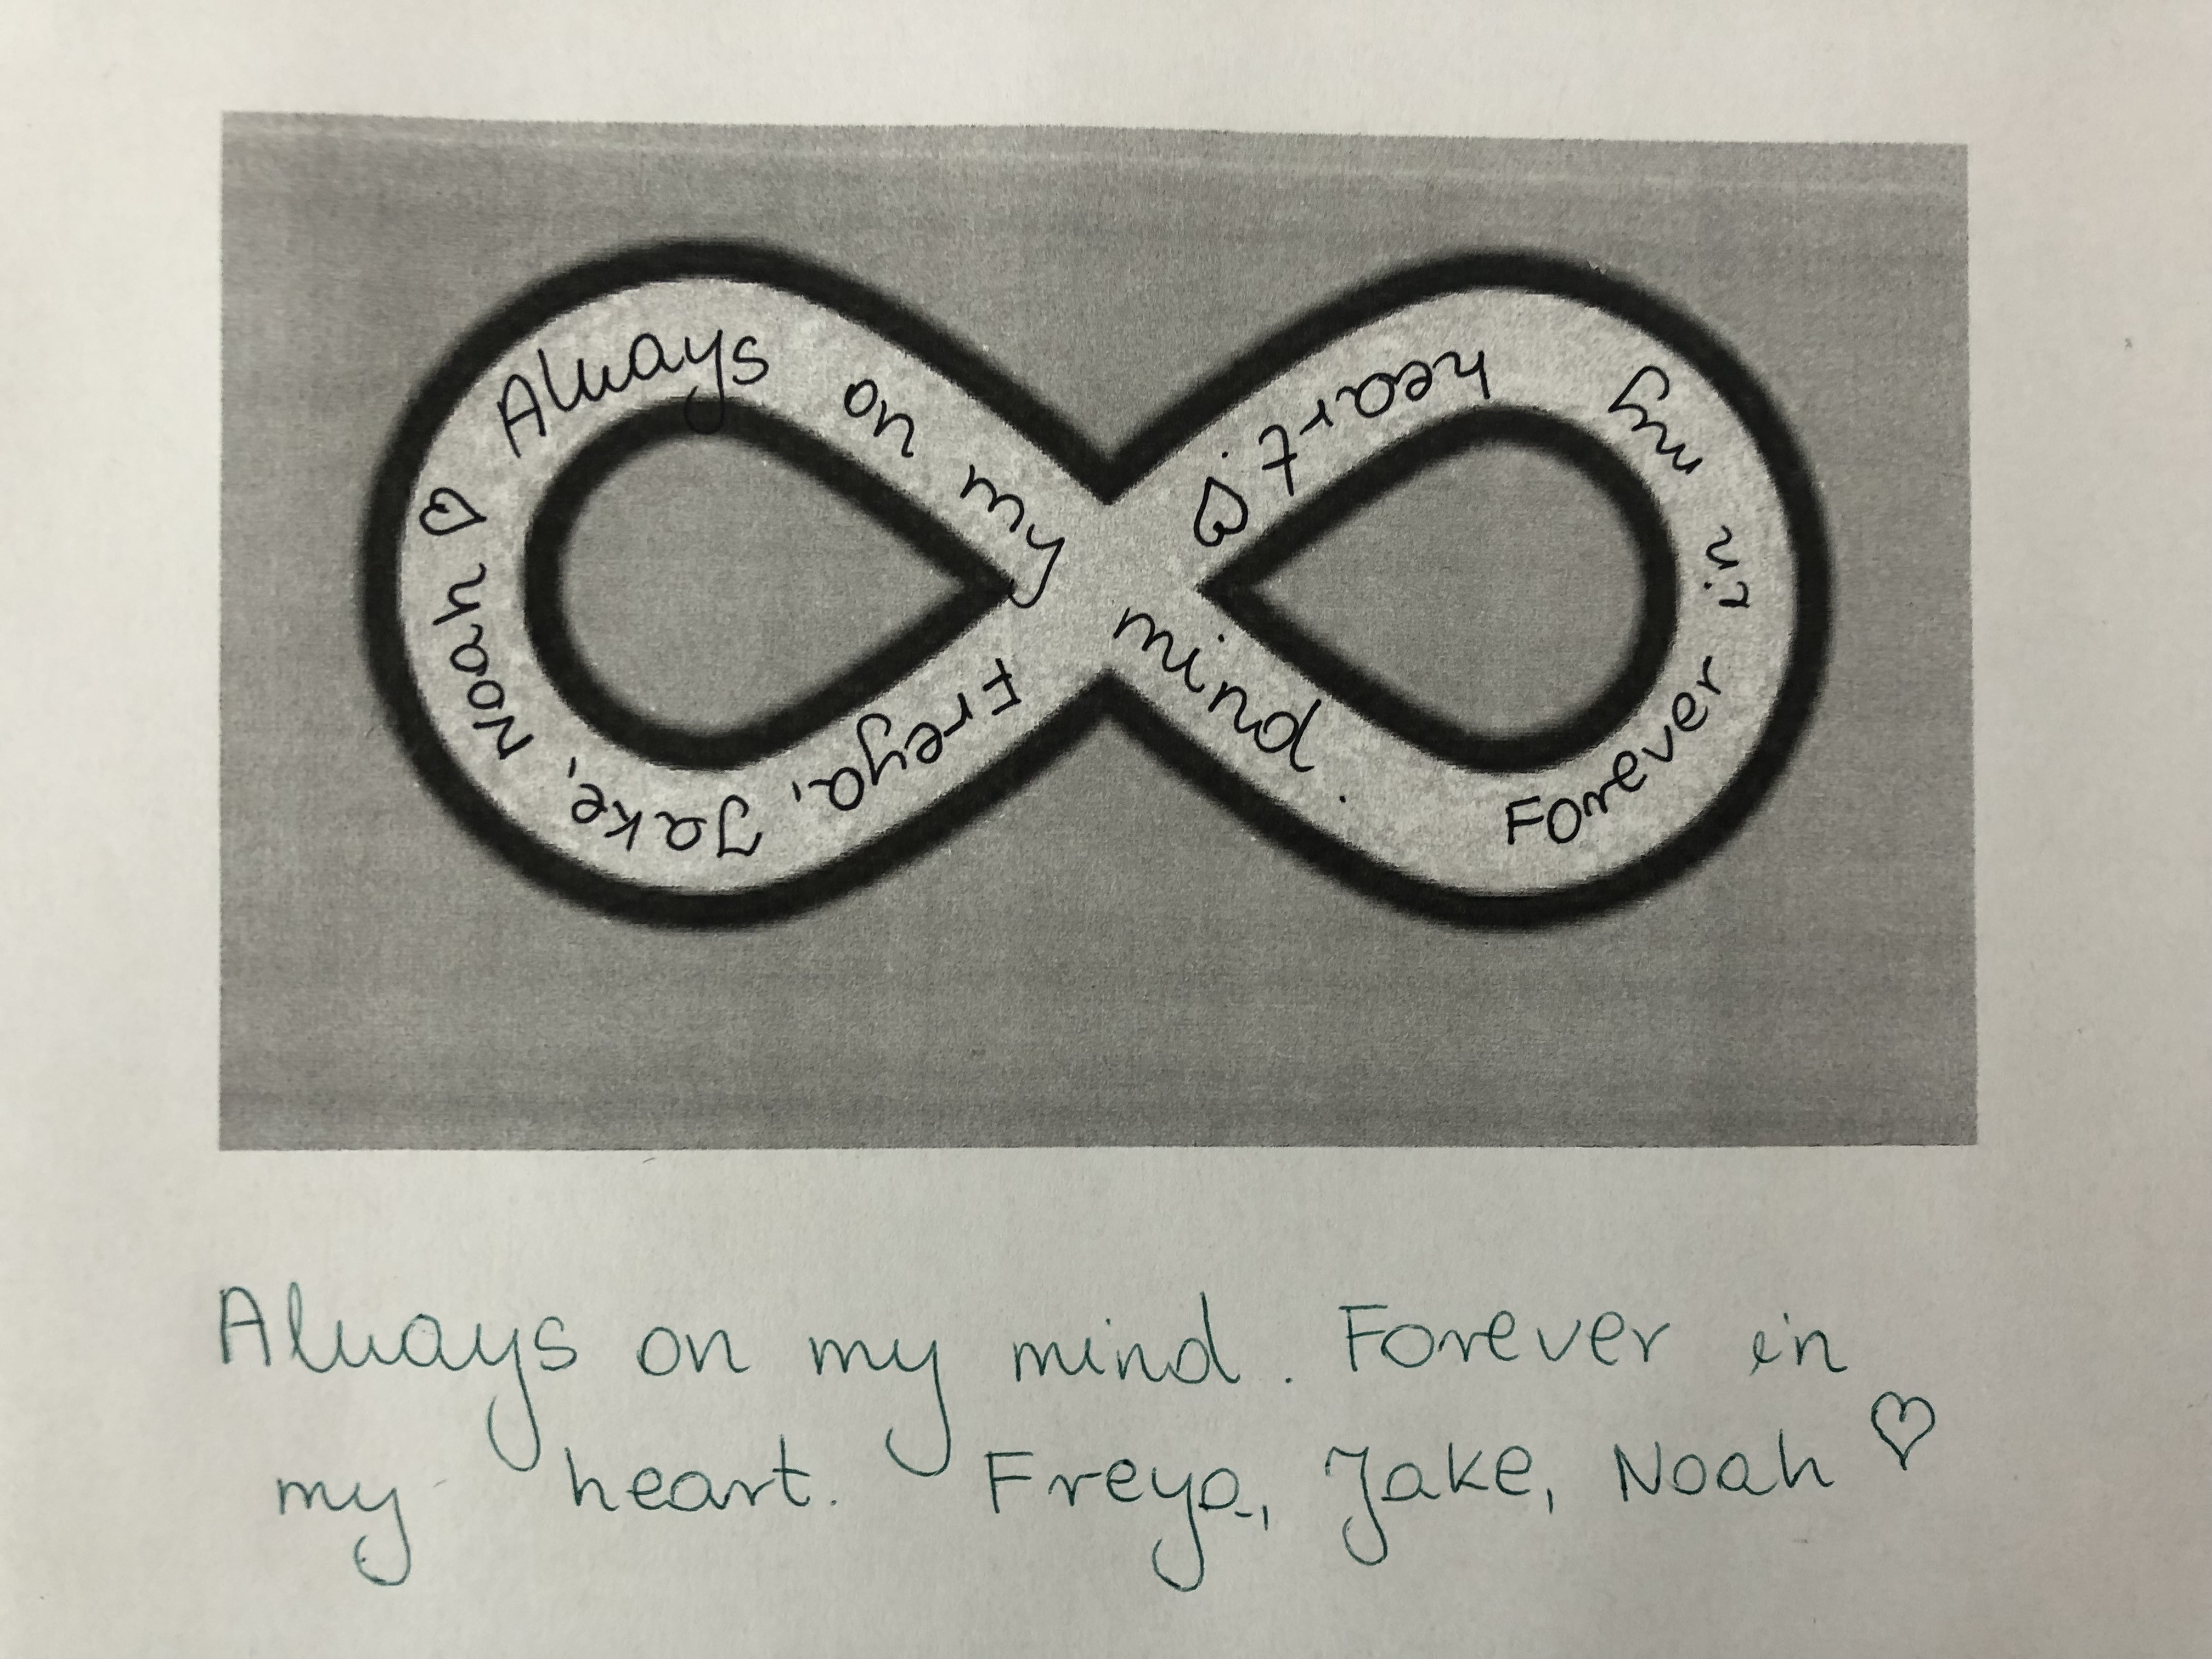 Always on my mind. Forever in my heart. ♡ Freya, Jake, Noah ♡
Always on my mind. Forever in
my heart. Freya, Jake, Noah ♡